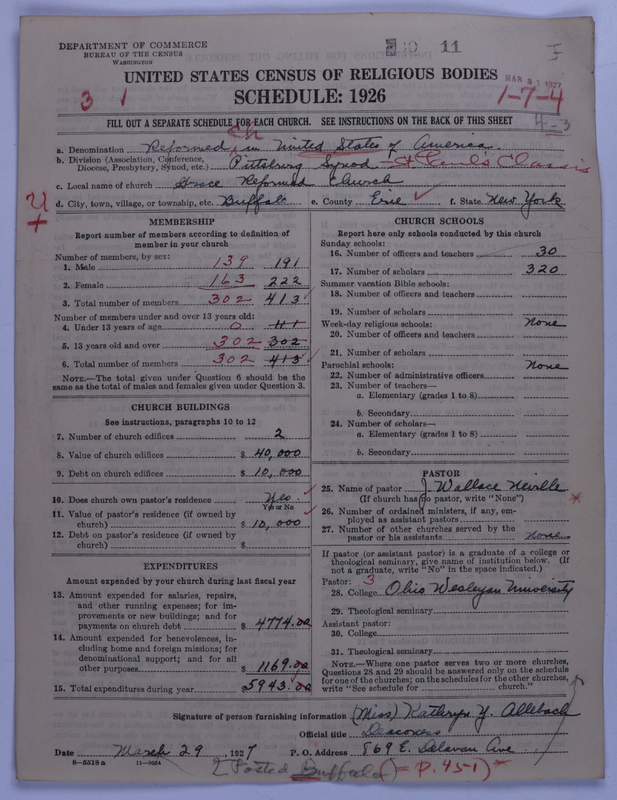 DEPARTMENT OF COMMERCE
BUREAU OF THE CENSUS
WASHINGTON
30 11
I
UNITED STATES CENSUS OF RELIGIOUS BODIES
MAR 31 1927
SCHEDULE: 1926
3 1
1-7-4
FILL OUT A SEPARATE SCHEDULE FOR EACH CHURCH. SEE INSTRUCTIONS ON THE BACK OF THIS SHEET
4-3
Ch
a. Denomination Reformed in United States of America.
b. Division (Association, Conference, Diocese, Presbytery, Synod, etc.) Pittsburg Synod - St Paul's Classis
c. Local name of church Grace Reformed Church
d. City, town, village, or township, etc. Buffalo e. County Erie f. State New York
MEMBERSHIP
Report number of members according to definition of
member in your church
Number of members, by sex:
1. Male 139 191
2. Female 163 222
3. Total number of members 302 413
Number of members under and over 13 years old:
4. Under 13 years of age 0 111
5. 13 years old and over 302 302
6. Total number of members 302 413
NOTE.—The total given under Question 6 should be the
same as the total of males and females given under Question 3.
CHURCH BUILDINGS
See instructions, paragraphs 10 to 12
7. Number of church edifices 2
8. Value of church edifices $ 40,000
9. Debt on church edifices $ 10,000
10. Does church own pastor's residence Yes
Yes or No
11. Value of pastor's residence (if owned by
church) $ 10,000
12. Debt on pastor's residence (if owned by
church) $
EXPENDITURES
Amount expended by your church during last fiscal year
13. Amount expended for salaries, repairs,
and other running expenses; for im-
provements or new buildings; and for
payments on church debt $ 4774.00
14. Amount expended for benevolences, in-
cluding home and foreign missions; for
denominational support; and for all
other purposes $ 1169.00
15. Total expenditures during year $5943.00
CHURCH SCHOOLS
Report here only schools conducted by this church
Sunday schools:
16. Number of officers and teachers 30
17. Number of scholars 320
Summer vacation Bible schools:
18. Number of officers and teachers
19. Number of scholars
Week-day religious schools: None
20. Number of officers and teachers
21. Number of scholars
Parochial schools: None
22. Number of administrative officers
23. Number of teachers—
a. Elementary (grades 1 to 8)
b. Secondary
24. Number of scholars—
a. Elementary (grades 1 to 8)
b. Secondary
PASTOR
25. Name of pastor J. Wallace Neville
(If church has no pastor, write "None") *
26. Number of ordained ministers, if any, em-
ployed as assistant pastors
27. Number of other churches served by the
pastor or his assistants None
If pastor (or assistant pastor) is a graduate of a college or
theological seminary, give name of institution below. (If
not a graduate, write "No" in the space indicated.)
Pastor: 3
28. College Ohio Wesleyan University
29. Theological seminary
Assistant pastor:
30. College
31. Theological seminary
NOTE.—Where one pastor serves two or more churches,
Questions 28 and 29 should be answered only on the schedule
for one of the churches; on the schedules for the other churches,
write "See schedule for church."
Signature of person furnishing information (Miss) Kathryn Y. Allebach
Official title Deaconess
Date March 29, 1927 P. O. Address 869 E. Delavan Ave.
8—5518a 11—9034
[Posted Buffalo (= p. 451)*